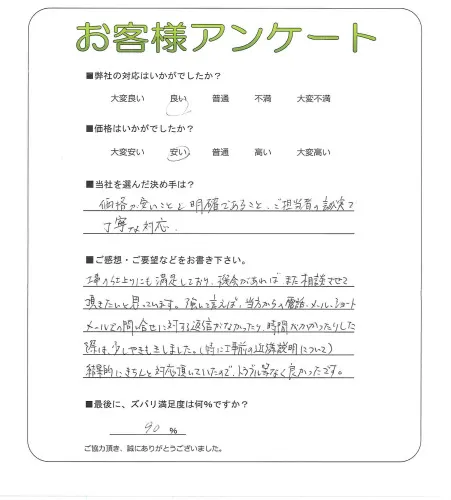 お客様アンケート
■弊社の対応はいかがでしたか?
大変良い 良い 普通 不満 大変不満
■価格はいかがでしたか?
大変安い 安い 普通 高い 大変高い
■当社を選んだ決め手は?
価格が安いことと明確であること、ご担当者の誠実で
丁寧な対応。
■ご感想・ご要望などをお書き下さい。
工事の仕上りにも満足しており、機会があればまた相談させて
頂きたいと思っています。強いて言えば、当方からの電話、メール、ショート
メールでの問い合せに対する返信がなかったり、時間がかかったりした
際は、少しやきもきしました。(特に工事前の近隣説明について)
結果的にきちんと対応頂いていたので、トラブル等なく良かったです。
■最後に、ズバリ満足度は何%ですか?
90 %
ご協力頂き、誠にありがとうございました。